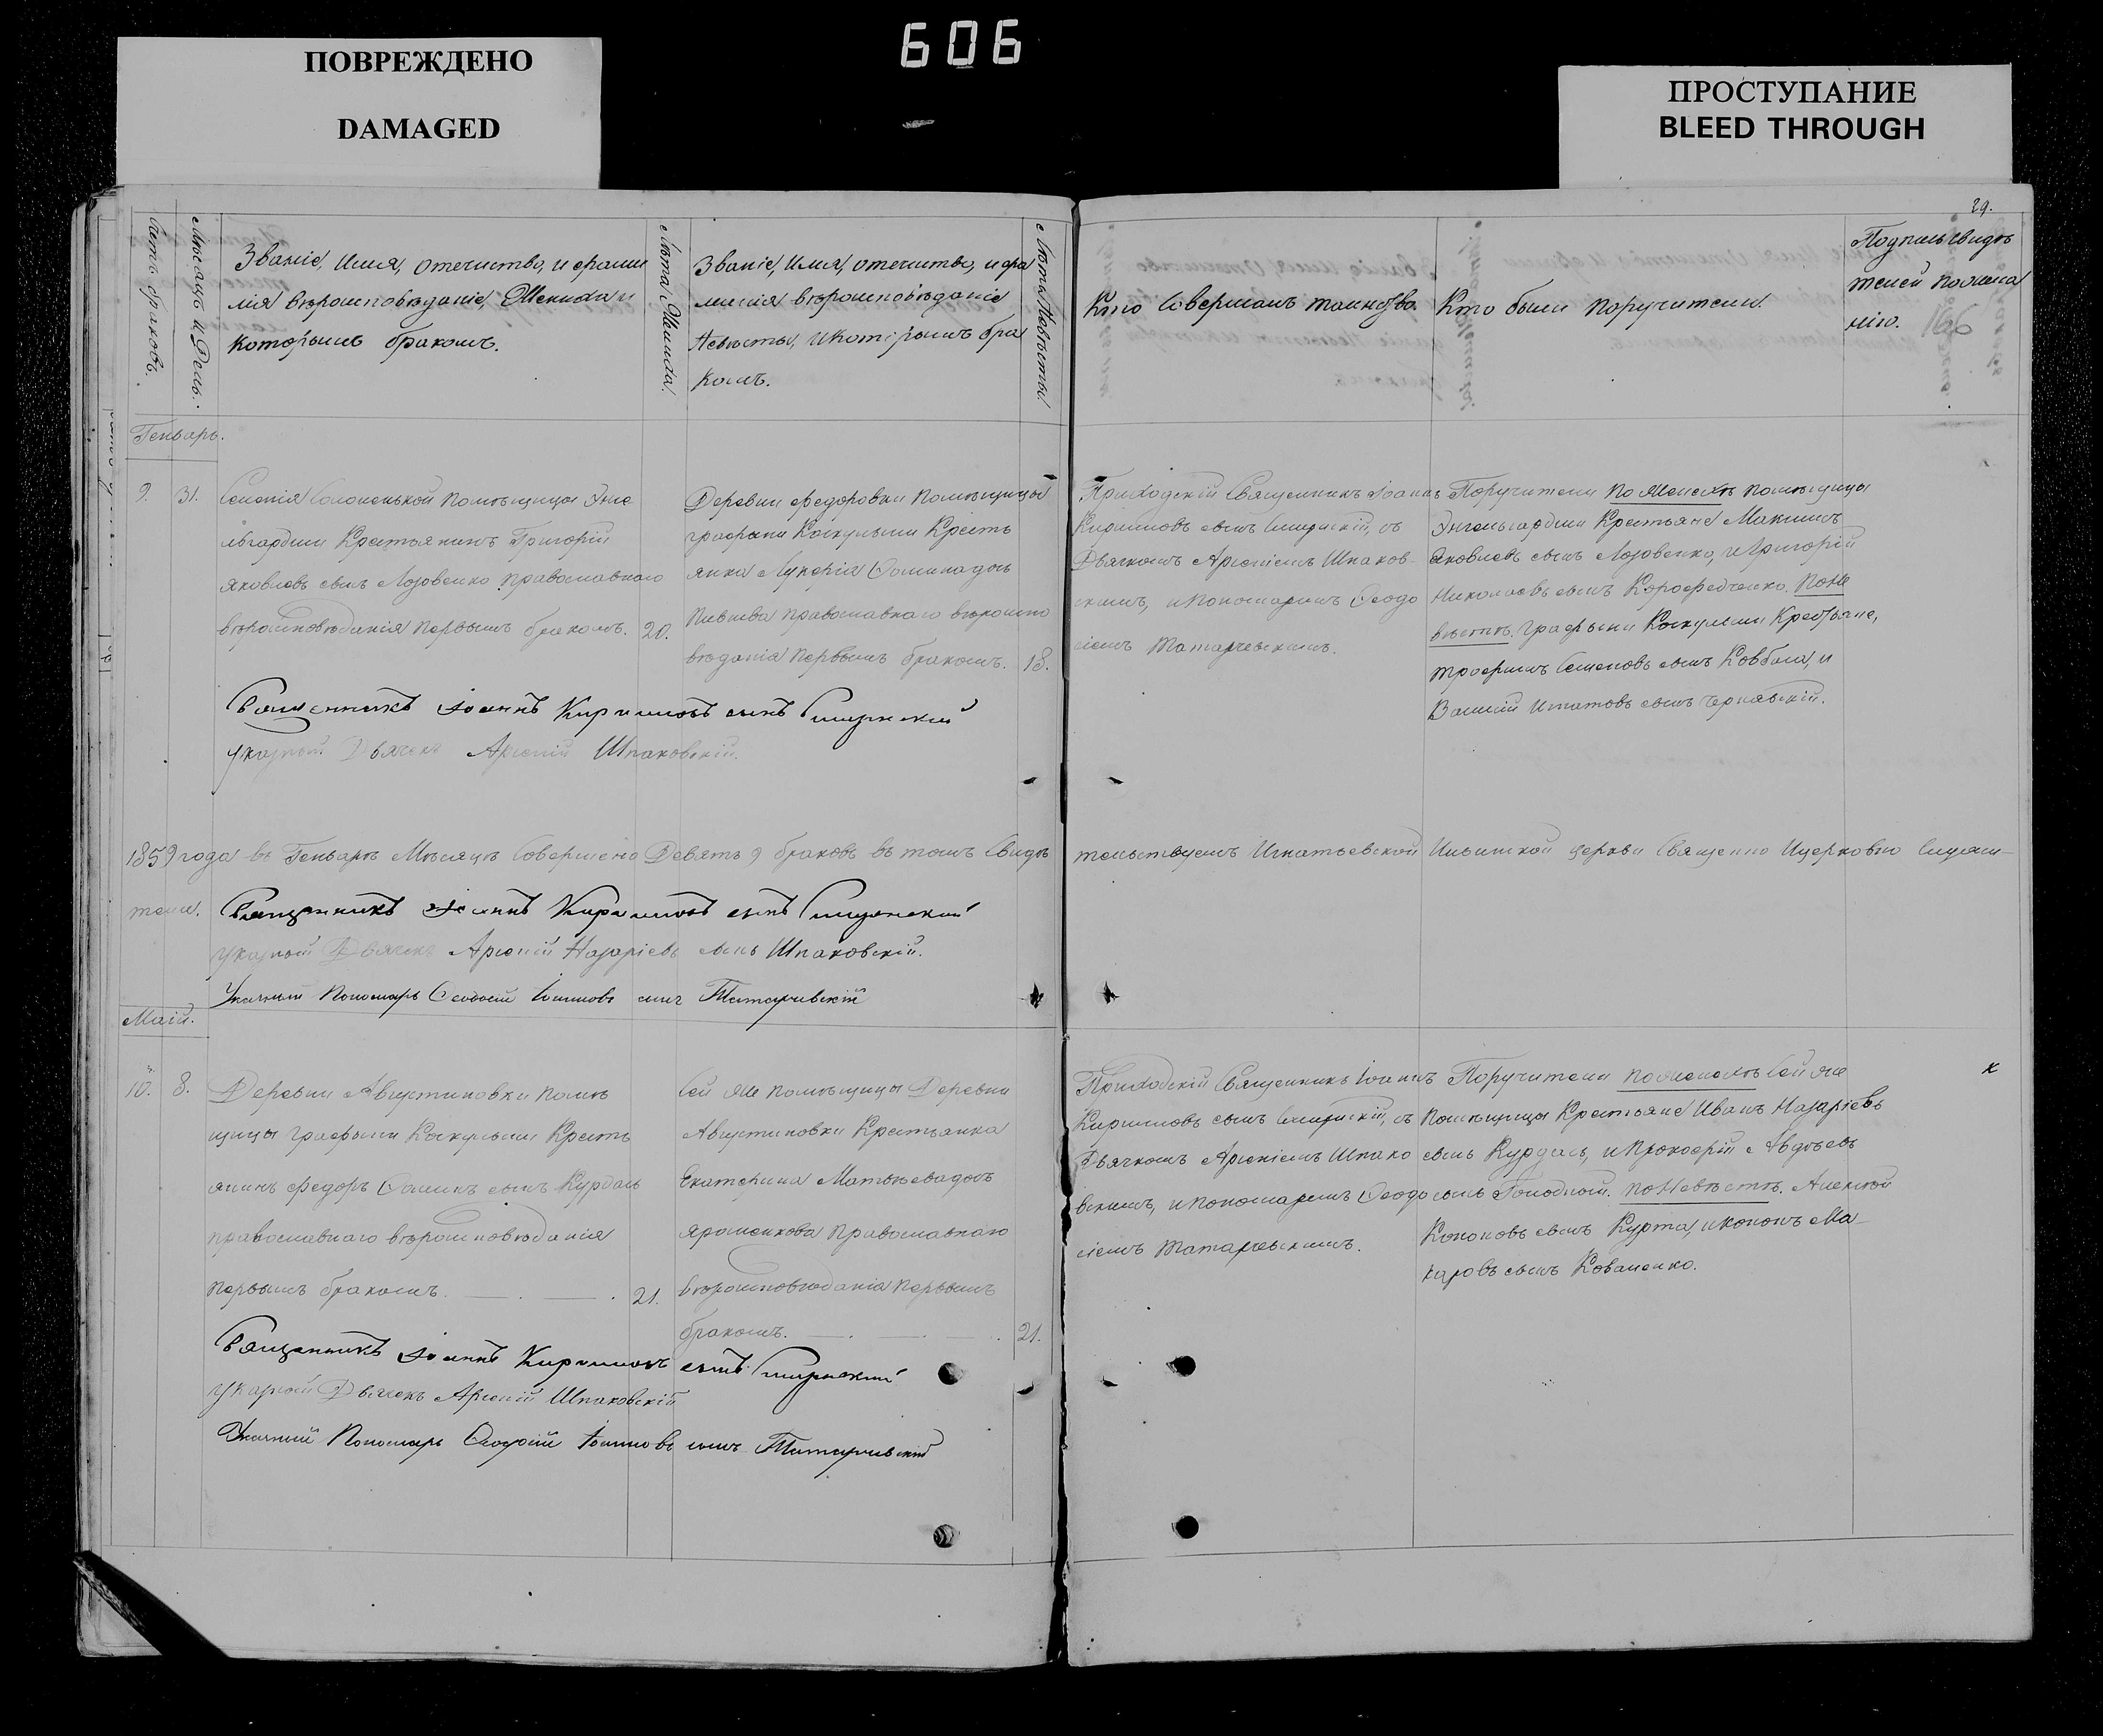 ПОВРЕЖДЕНО
DAMAGED
606
ПРОСТУПАНИЕ
BLEED THROUGH
29.
Счетъ браковъ.
Мѣсяцъ и День.
Званіе, Имя, отечиство, и фами
лія вѣроисповѣданіе, Жениха и
которымъ бракомъ.
Лѣта Жениха.
Званіе, Имя, отечиство, и фа
милія вѣроисповѣданіе
Невѣсты, и которымъ бра
комъ.
Лѣта Невѣсты.
Кто совершалъ таинство.
Кто были поручители.
Подпись свидѣ
телей по жела
нію.
Генварь.
9.
31.
Селенія Солоненькой помѣщицы Энге
льгардши Крестьянинъ Григорій
Яковлевъ сынъ Лозовенко православнаго
вѣроисповѣданія первымъ бракомъ.
20.
Деревни Федоровки помѣщицы
графини Коскульши Кресть
янка Лукерія
православнаго вѣроиспо
вѣданія первымъ бракомъ.
18.
Приходскій Священникъ Іоаннъ
Кириловъ сынъ с
Дьячкомъ Арсеніемъ Шпаков-
скимъ, и пономаремъ Ѳеодо
сіемъ Татарчевскимъ.
Поручители по Женихѣ помѣщицы
Энгельгардши Крестьяне Максимъ
Яковлевъ сынъ Лозовенко, и Григорій
Николаевъ сынъ по Не
вѣстѣ. графини Коскульши Крестьяне,
Трофимъ Семеновъ сынъ Ковбаса, и
Василій Игнатовъ сынъ Чернявскій.
Священникъ Іоаннъ Кириловъ сынъ
указный Дьячекъ Арсеній Шпаковскій.
1859 года въ Генварѣ Мѣсяцѣ совершено Девять 9 браковъ въ томъ свидѣ
тельствуемъ Игнатьевской Ильинской церкви Священно и церковно служи-
тели.
Священникъ Іоаннъ Кириловъ сынъ
указный Дьячекъ Арсеній Назаріевъ сынъ Шпаковскій.
Указный Пономарь Ѳеодосій Іоанновъ сынъ Татарчевскій
Маій.
10.
8.
Деревни Августиновки помѣ
щицы графини Коскульши Кресть
янинъ Федоръ Ѳоминъ сынъ Курдась
православнаго вѣроисповѣданія
первымъ бракомъ.
21.
Сей же помѣщицы Деревни
Августиновки Крестьянка
Екатерина Матвѣева дочь
православнаго
вѣроисповѣданія первымъ
бракомъ.
21.
Приходскій Священникъ Іоаннъ
Кириловъ сынъ с
Дьячкомъ Арсеніемъ Шпако
вскимъ, и пономаремъ Ѳеодо
сіемъ Татарчевскимъ.
Поручители по женихѣ сей же
помѣщицы Крестьяне Иванъ Назаріевъ
сынъ Курдась, и Прокофій Авдѣевъ
сынъ Голодной. по Невѣстѣ. Алексѣй
Кононовъ сынъ Курта, и Кононъ Ма-
каровъ сынъ Коваленко.
х
Священникъ Іоаннъ Кириловъ сынъ
указный Дьячекъ Арсеній Шпаковскій
Указный Пономарь Ѳеодосій Іоанновъ сынъ Татарчевскій